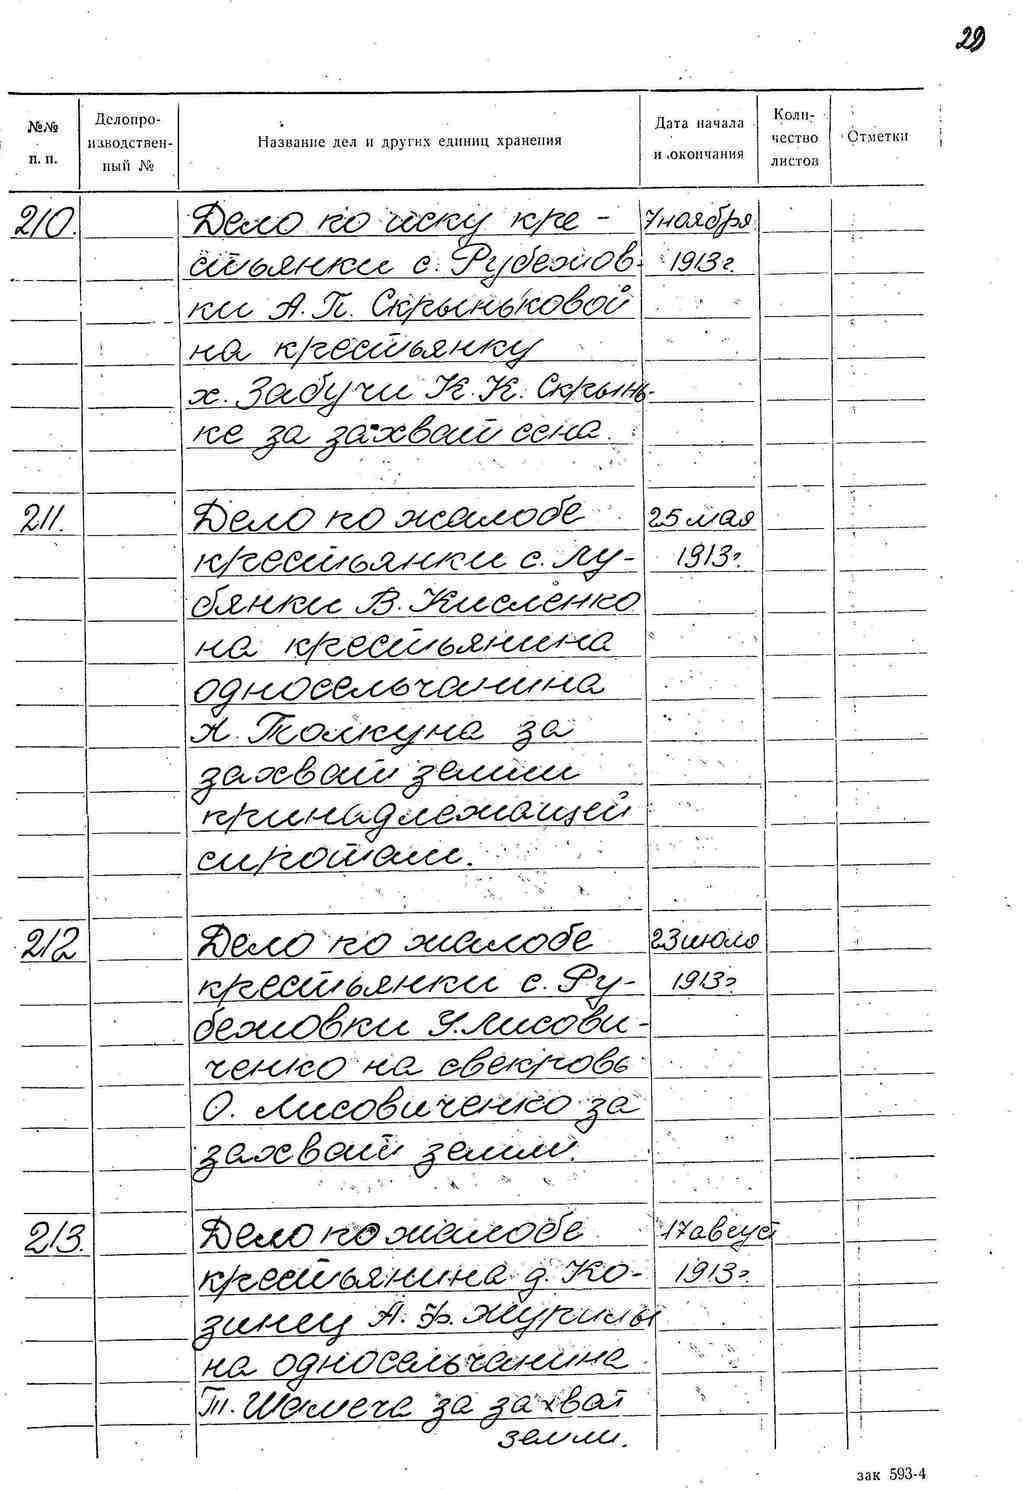 29
№№ п. п.
Делопроизводственный №
Название дел и других единиц хранения
Дата начала и окончания
Количество листов
Отметки
210.
Дело по иску кре-
7 ноября
стьянки с. Рубежов-
1913 г.
ки А. П. Скрыньковой
на крестьянку
х. Забучи К. К. Скрынь-
ке за захват сена.
211.
Дело по жалобе
25 мая
крестьянки с. Лу-
1913 г.
бянки В. Кисленко
на крестьянина
односельчанина
Н. Толкуна за
захват земли
принадлежащей
сиротам.
212
Дело по жалобе
23 июля
крестьянки с. Ру-
1913 г.
бежовки У. Лисови-
ченко на свекровь
О. Лисовиченко за
захват земли.
213.
Дело по жалобе
17 август
крестьянина д. Ко-
1913 г.
зинец А. Ф. Журилы
на односельчанина
Т. Шамеча за захват
земли.
зак 593-4